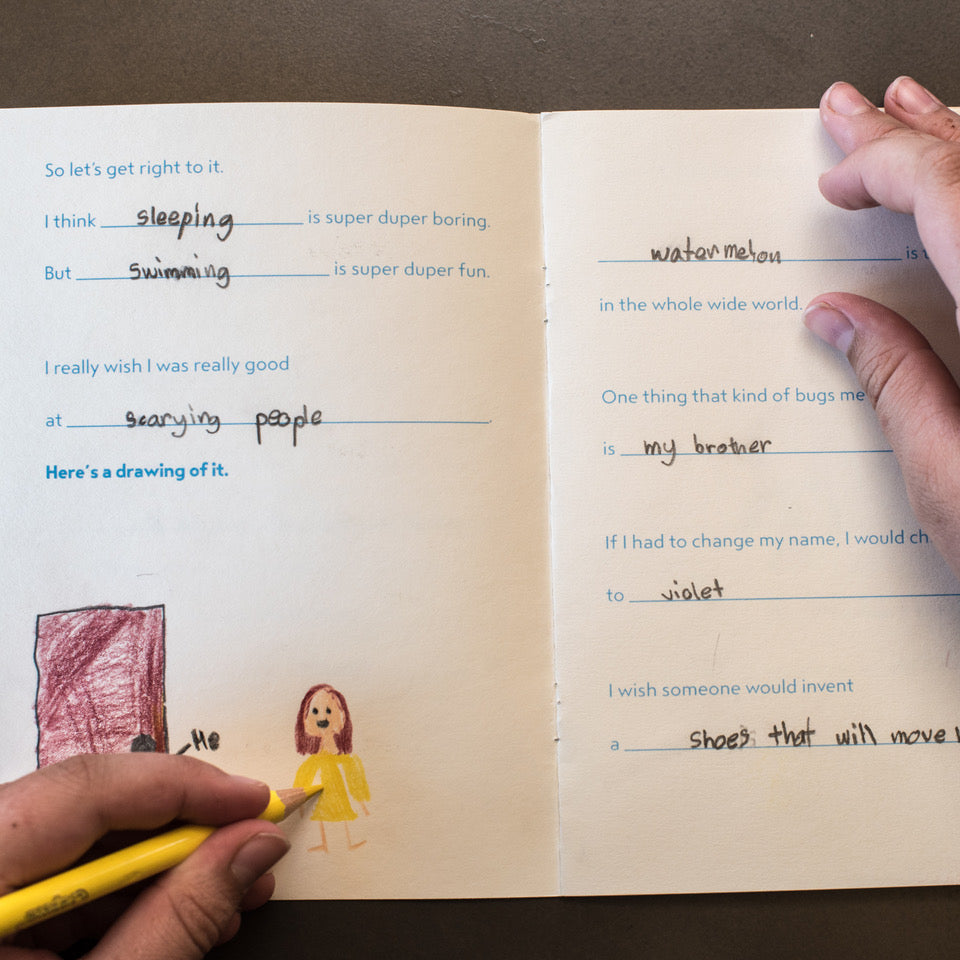 So let's get right to it.
I think sleeping is super duper boring.
But swimming is super duper fun.
I really wish I was really good
at scarying people.
Here's a drawing of it.
Me
watermelon is
in the whole wide world.
One thing that kind of bugs me
is my brother
If I had to change my name, I would ch
to violet
I wish someone would invent
a shoes that will move